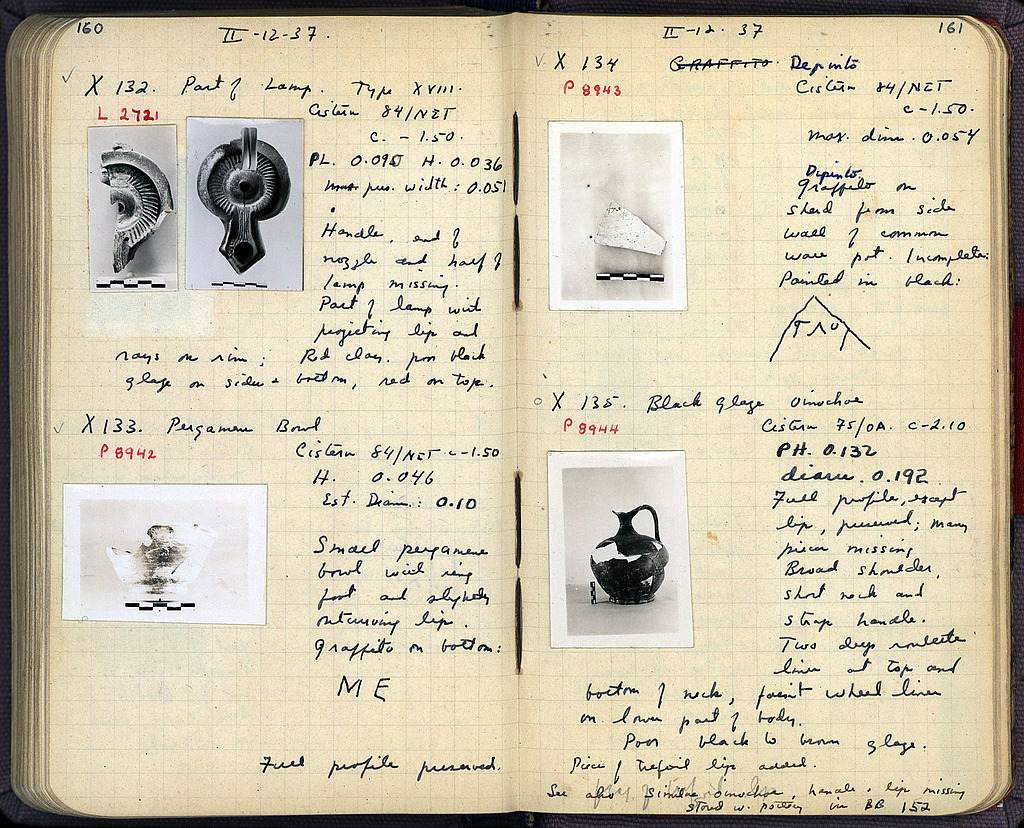 160
II-12-37.
X 132. Part of Lamp. Type XVIII.
L 2721
Cistern 84/ΝΣΤ
c. -1.50.
PL. 0.095 H. 0.036
pres. width: 0.051
Handle, end of
nozzle and half of
lamp missing.
Part of lamp with
projecting lip and
rays on rim; Red clay, poor black
glaze on sides & bottom, red on top.
X 133. Pergamene Bowl
P 8942
Cistern 84/ΝΣΤ c-1.50
H. 0.046
Est. Diam.: 0.10
Small pergamene
bowl with ring
foot and slightly
outcurving lip.
Graffito on bottom:
ME
Full profile preserved.
161
II-12-37
X 134 GRAFFITO Depinto
P 8943
Cistern 84/ΝΣΤ
c-1.50.
max. dim. 0.054
Dipinto
graffito on
sherd from side
wall of common
ware pot. Incomplete.
Painted in black:
X 135. Black glaze oinochoe
P 8944
Cistern 75/ΟΑ. c-2.10
PH. 0.132
diam. 0.192
Full profile, except
lip, preserved; many
pieces missing
Broad shoulder,
short neck and
strap handle.
Two deep roulette
lines at top and
bottom of neck, faint wheel lines
on lower part of body.
Poor black to brown glaze.
Piece of trefoil lip added.
See also similar oinochoe, handle & lip missing
stored w. pottery in BB 152